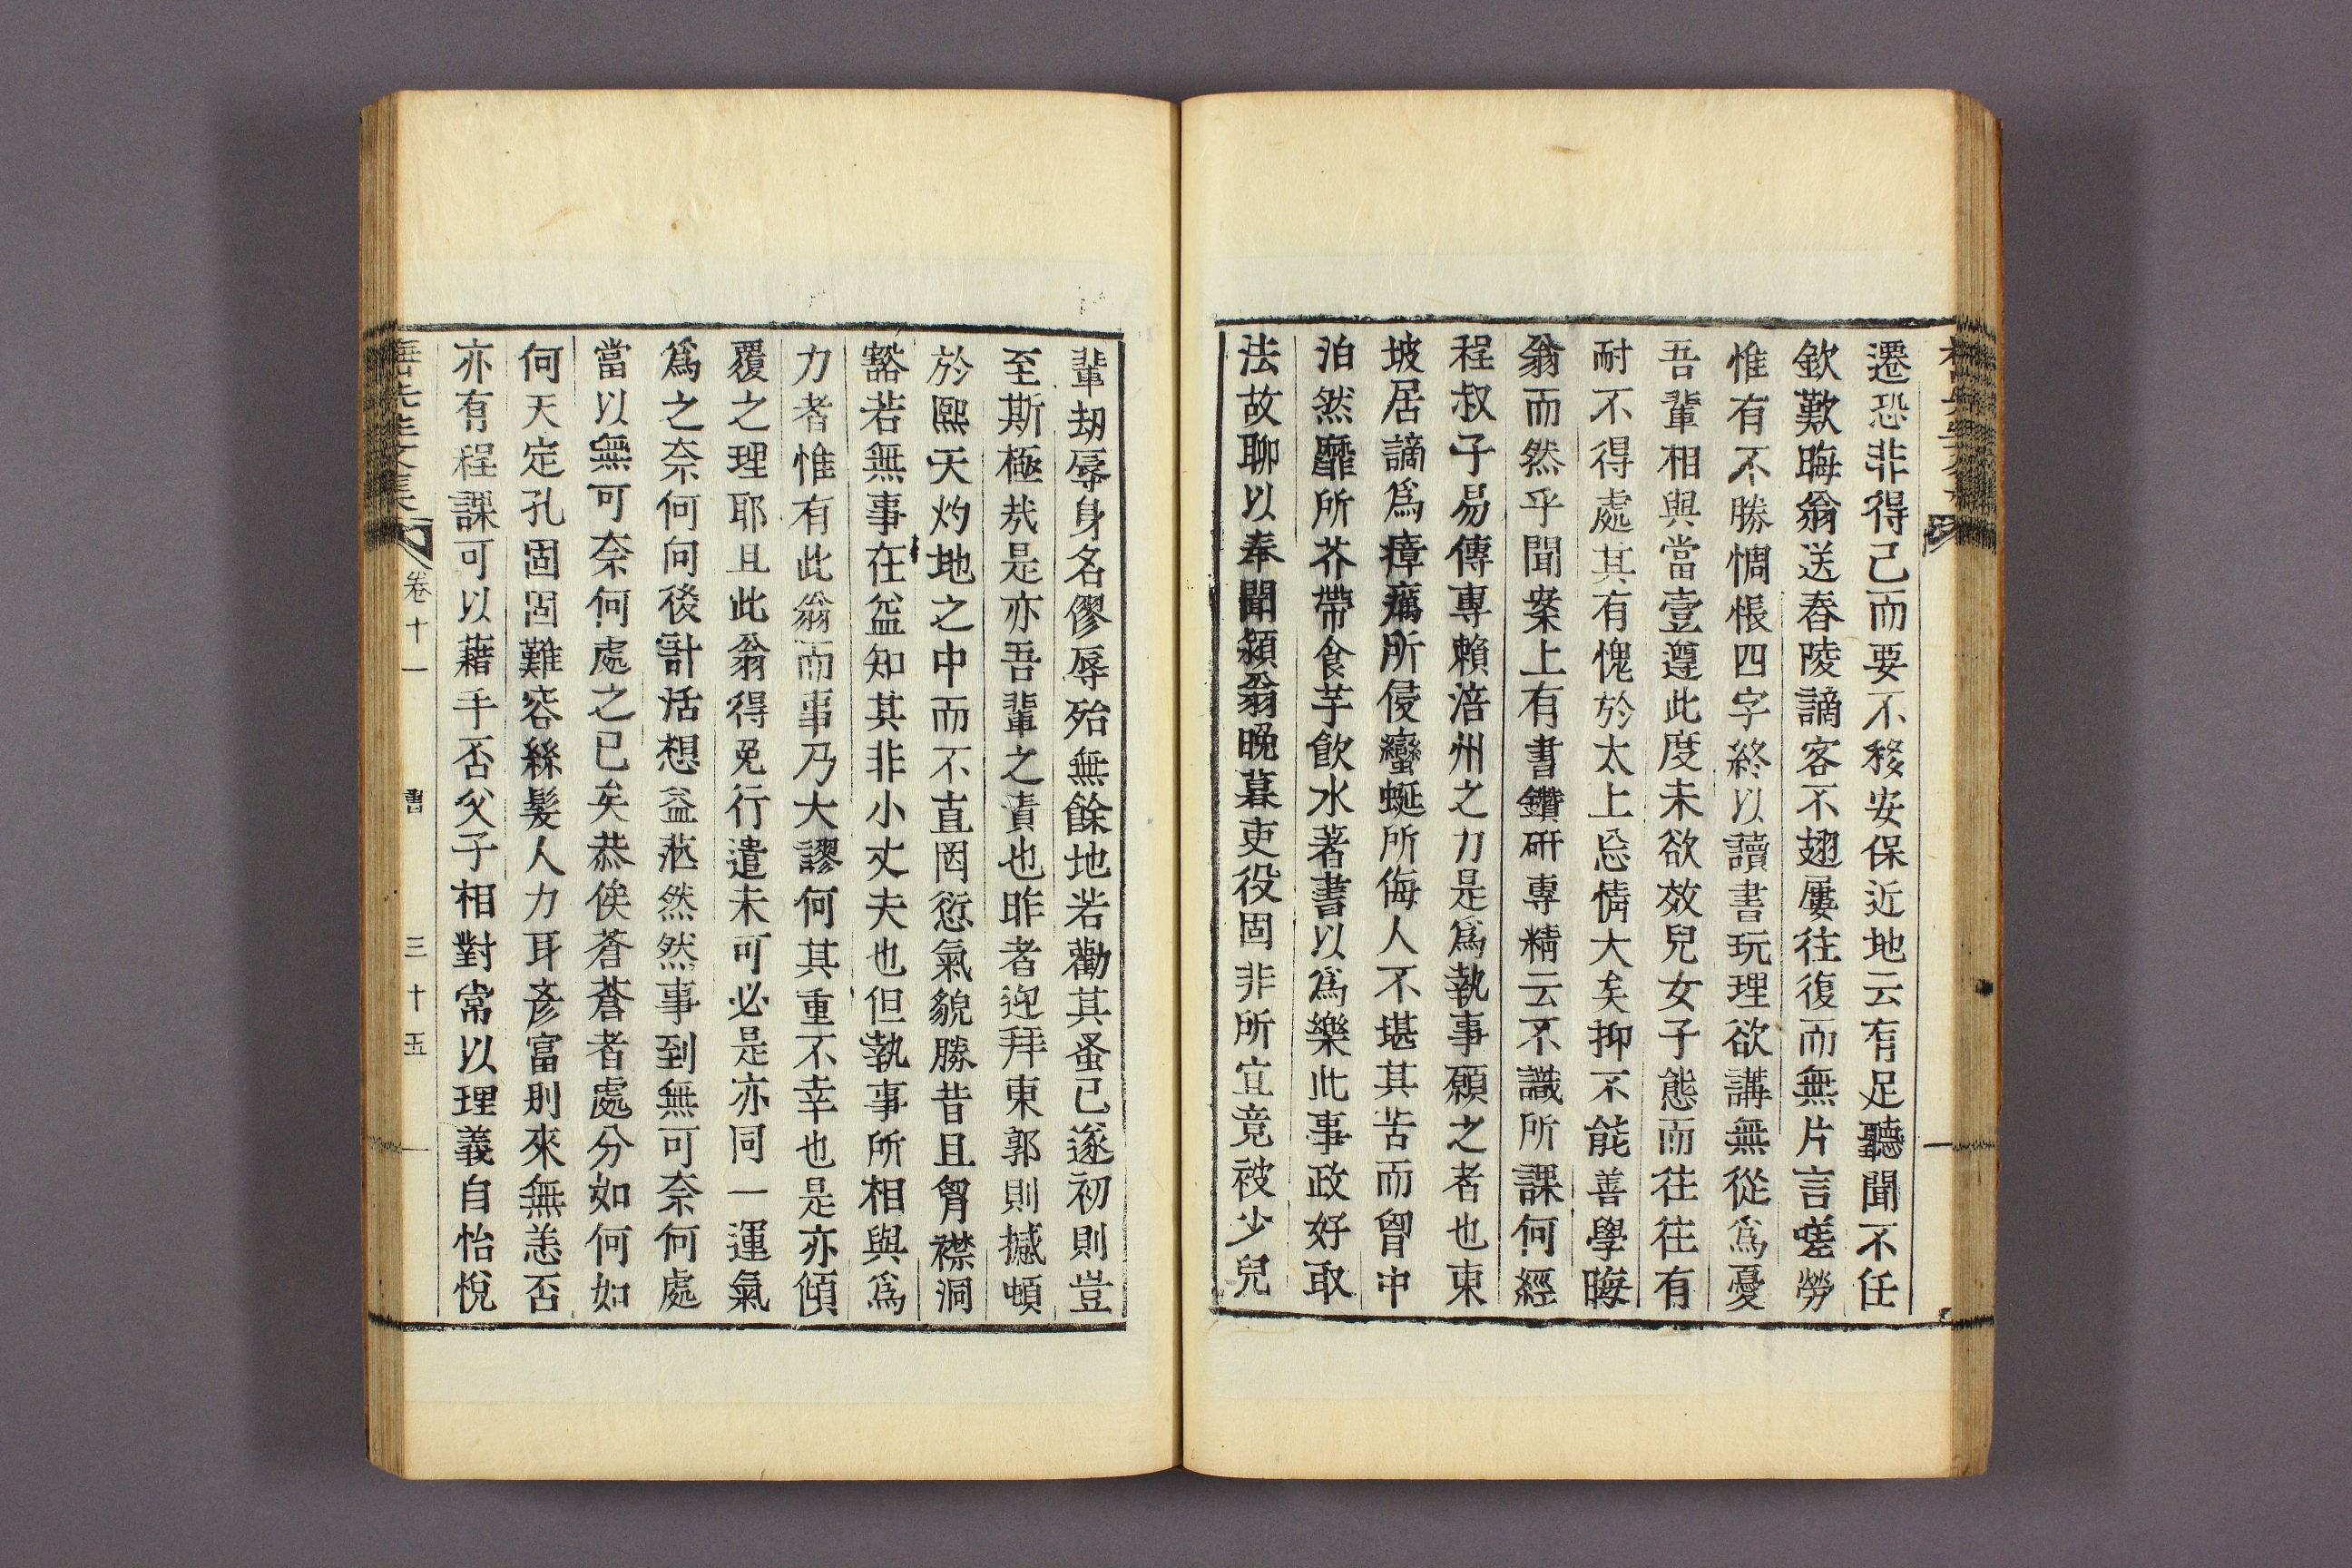 遷恐非得已而要不移安保近地云有足聽聞不任
欽歎晦翁送舂陵謫客不翅屢往復而無片言嗟勞
惟有不勝惆悵四字終以讀書玩理欲講無從爲憂
吾輩相與當壹遵此度未欲效兒女子態而往往有
耐不得處其有愧於太上忘情大矣抑不能善學晦
翁而然乎聞案上有書鑽硏專精云不識所課何經
程叔子易傳專賴涪州之力是爲執事願之者也東
坡居謫爲瘴癘所侵蠻蜒所侮人不堪其苦而胷中
泊然靡所芥帶食芋飮水著書以爲樂此事政好取
法故聊以奉聞潁翁晩暮吏役固非所宜竟被少兒
輩劫辱身名僇辱殆無餘地若勸其蚤已遂初則豈
至斯極哉是亦吾輩之責也昨者迎拜東郭則撼頓
於熙天灼地之中而不直罔愆氣貌勝昔且胷襟洞
豁若無事在益知其非小丈夫也但執事所相與爲
力者惟有此翁而事乃大謬何其重不幸也是亦傾
覆之理耶且此翁得免行遣未可必是亦同一運氣
爲之奈何向後計活想益茫然然事到無可奈何處
當以無可奈何處之已矣恭俟蒼蒼者處分如何如
何天定孔固固難容絲髮人力耳彥富則來無恙否
亦有程課可以藉手否父子相對常以理義自怡悅
卷十一 書 三十五